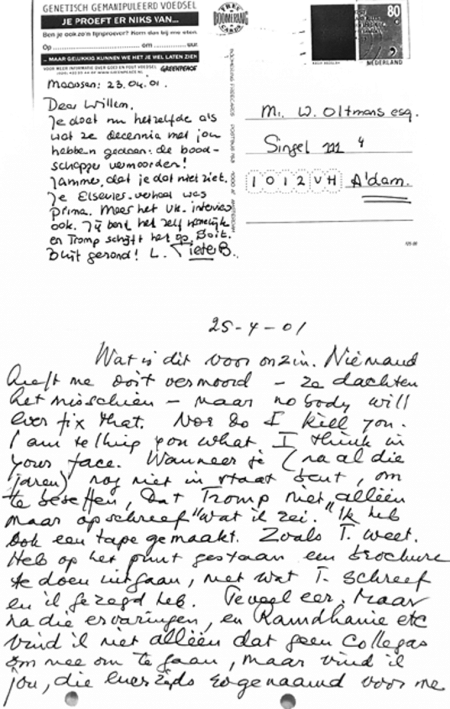 GENETISCH GEMANIPULEERD VOEDSEL
JE PROEFT ER NIKS VAN...
Ben je ook zo'n fijnproever? Kom dan bij me eten
Op om uur
... MAAR GELUKKIG KUNNEN WE HET JE WEL LATEN ZIEN
GREENPEACE
FREE
BOOMERANG
CARDS
80
NEDERLAND
23.04.01.
Dear Willem,
Je doet nu hetzelfde als
wat ze decennia met jou
hebben gedaan: de bood-
schapper vermoorden!
Jammer, dat je dat niet ziet.
Je Elseviers-verhaal was
prima. Maar het VK. interview
ook. Jij bent het zelf
en Tromp schrijft het op. Basta.
Blijf gezond! L. Pieter B.
Mr. W. Oltmans esq.
Singel
1012VH A'dam.
25-4-01
Wat is dit voor onzin. Niemand
heeft me ooit vermoord - ze dachten
het misschien - maar nobody will
ever fix that. Nor do I kill you.
I am telling you what I think in
your face. Wanneer je (na al die
jaren) nog niet in staat bent, om
te beseffen, dat Tromp niet alléén
maar opschreef "wat ik zei." Ik heb
ook een tape gemaakt. Zoals T. weet.
Heb op het punt gestaan een brochure
te doen uitgaan, met wat T. schreef
en ik gezegd heb. Teveel eer. Maar
na die ervaringen, en Ramdhanie etc
vind ik niet alléén dat geen collegas
om mee om te gaan, maar vind ik
jou, die enerzijds zogenaamd voor me